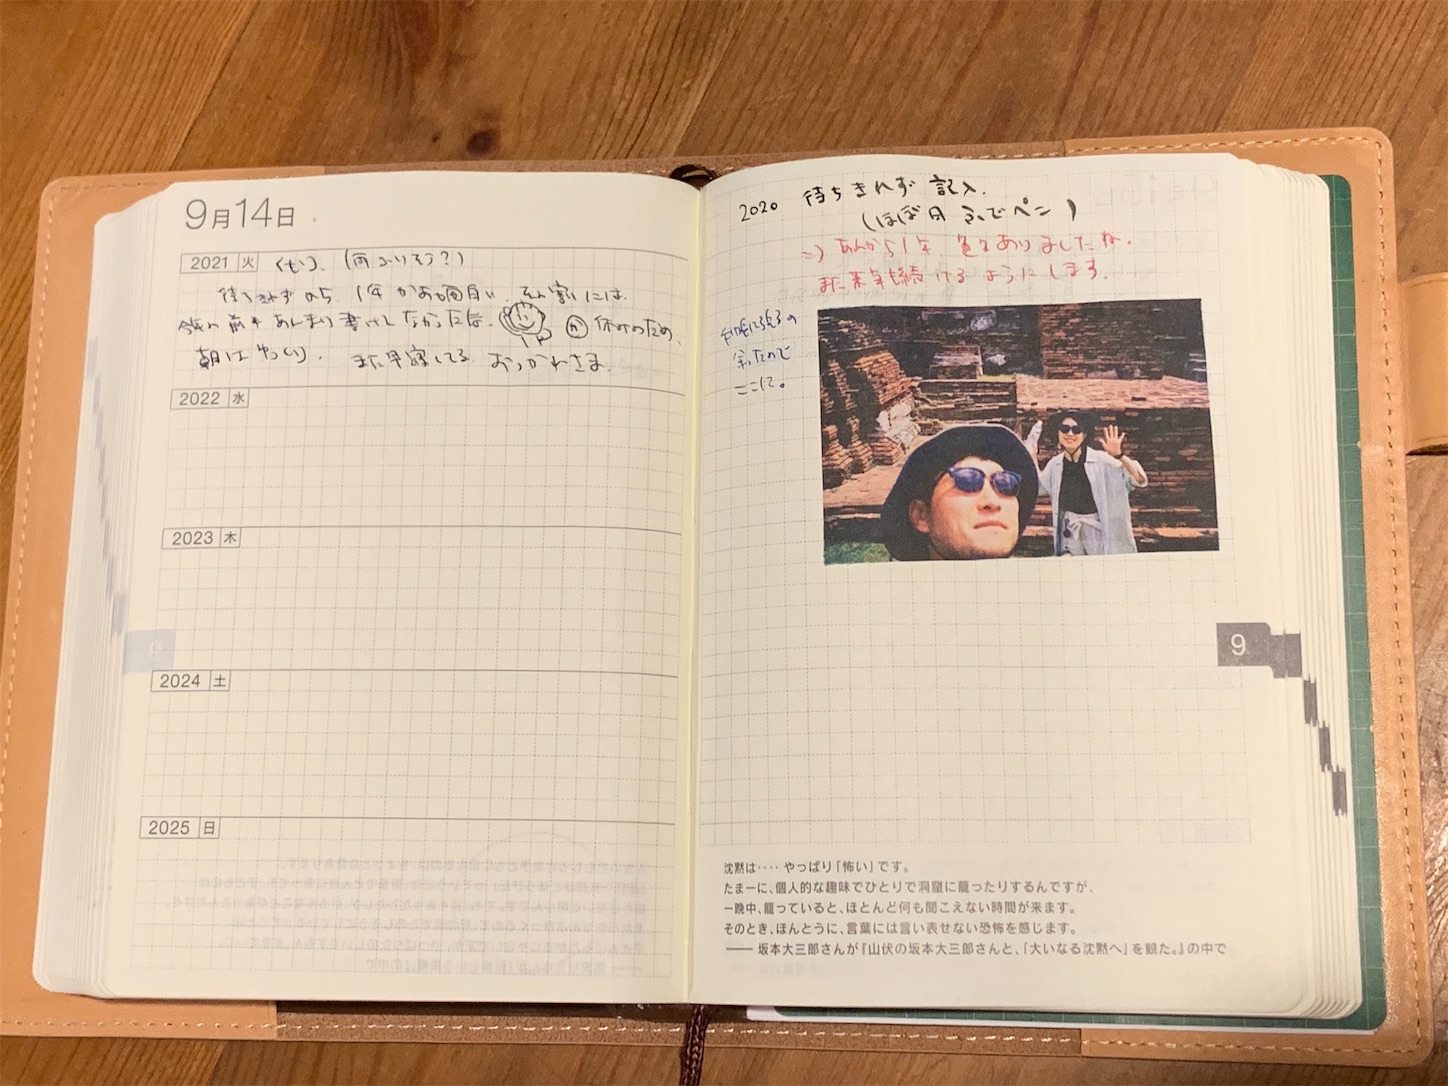 9月14日
2021 火 くもり. (雨ふりそう?)
待ちきれず から. 1年 か
今年の 前半 あんまり 書けてなかった 休みのため、
朝は ゆっくり. また早寝してる. おつかれさま.
2022 水
2023 木
2024 土
2025 日
2020 待ちきれず 記入.
(ほぼ日 ふでペン)
⇒ あれから1年 色々ありましたね.
また来年も続けるようにします.
余ったので
ここに。
9
沈黙は‥‥やっぱり「怖い」です。
たまーに、個人的な趣味でひとりで洞窟に籠ったりするんですが、
一晩中、籠っていると、ほとんど何も聞こえない時間が来ます。
そのとき、ほんとうに、言葉には言い表せない恐怖を感じます。
―― 坂本大三郎さんが『山伏の坂本大三郎さんと、「大いなる沈黙へ」を観た。』の中で